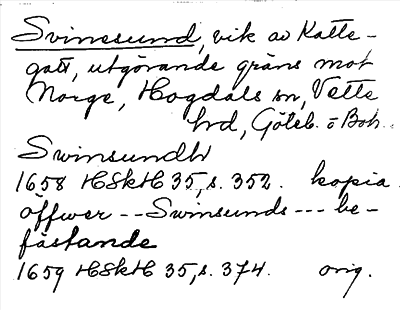 Svinesund, vik av Katte-
gatt, utgörande gräns mot
Norge, Hogdals sn, Vette
hrd, Göteb. o Boh.
Swinsundh
1658 HSkH 35, s. 352. kopia.
öffwer -- Swinsunds --- be-
fästande
1659 HSkH 35, s. 374. orig.